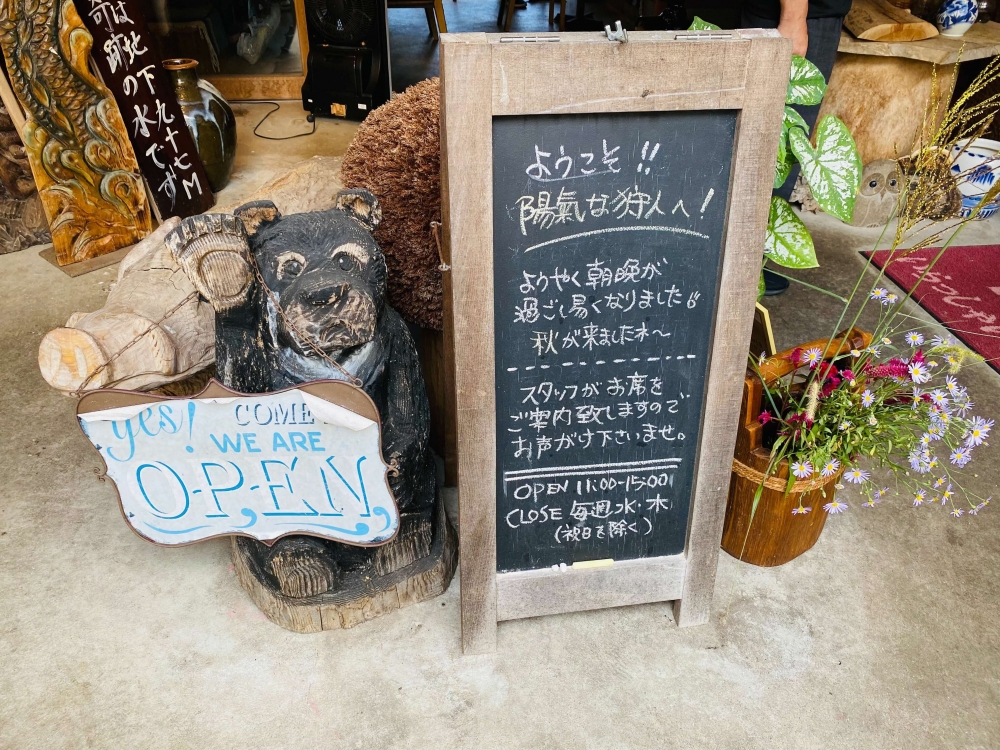 は地下九十七M
跡の水です
yes! COME
WE ARE
OPEN
ようこそ!!
陽氣な狩人へ!
ようやく朝晩が
過ごし易くなりました!!
秋が来ました木〜
スタッフがお席を
ご案内致しますので
お声がけ下さいませ。
OPEN 11:00-15:00
CLOSE 毎週水・木
(祝日を除く)